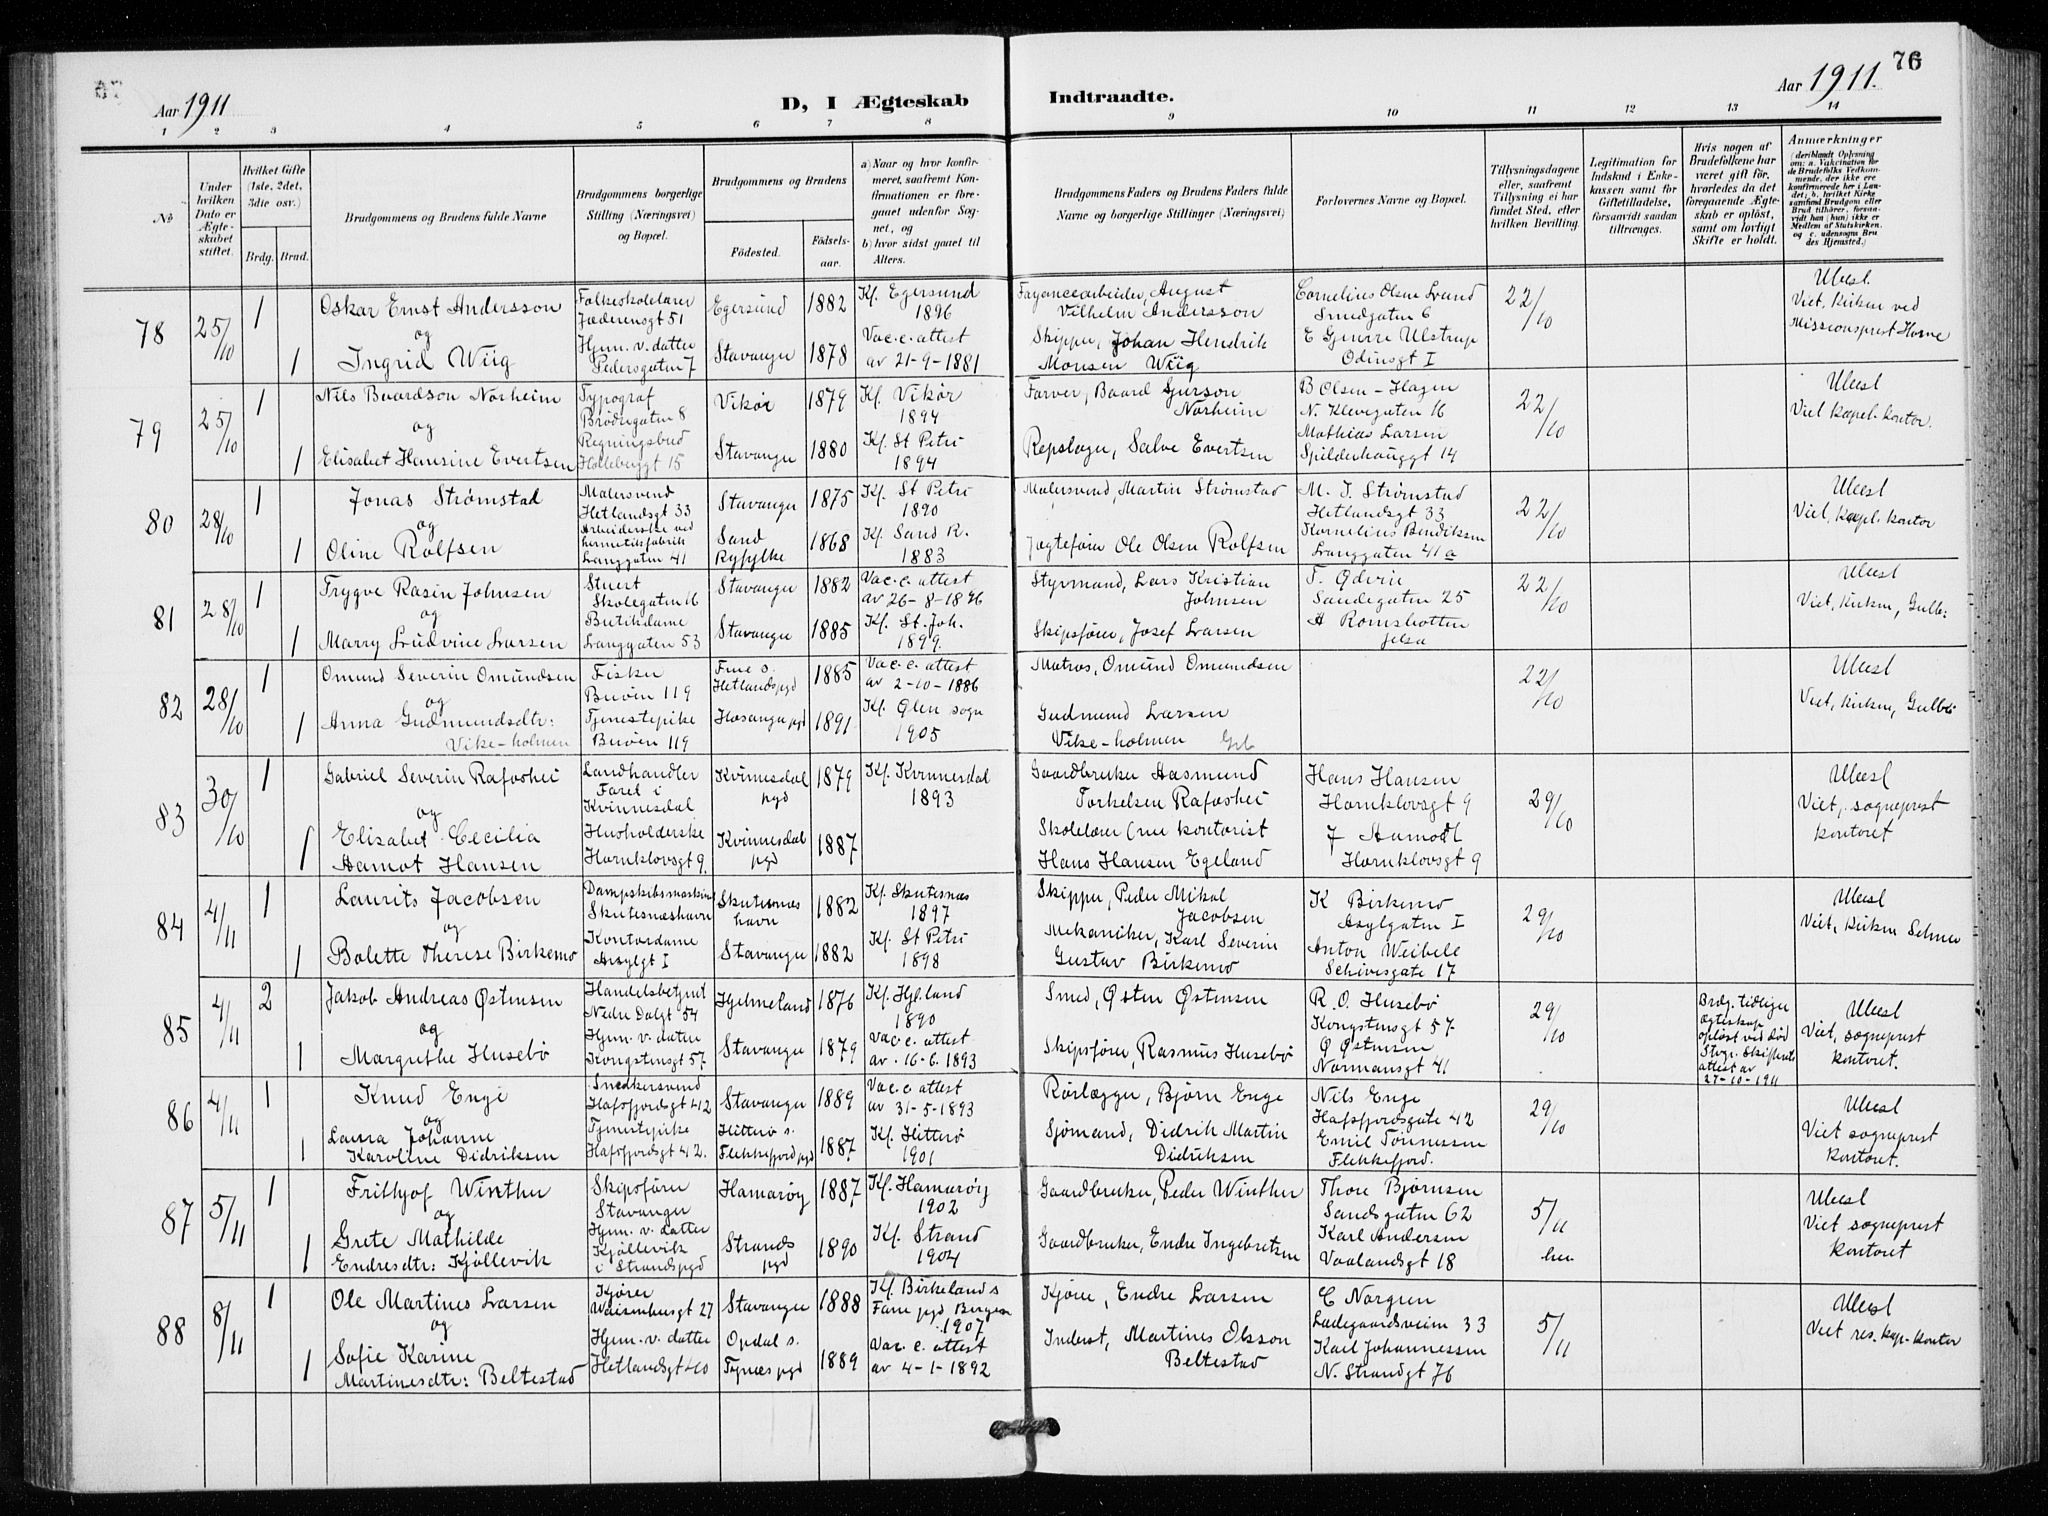 76
Aar 1911
D, I Ægteskab
Indtraadte.
Aar 1911.
1 2 3 4 5 6 7 8 9 10 11 12 13 14
№
Under hvilken Dato er Ægteskabet stiftet.
Hvilket Gifte (1ste, 2det, 3die osv.)
Brdg. Brud.
Brudgommens og Brudens fulde Navne
Brudgommens borgerlige Stilling (Næringsvei) og Bopæl.
Brudgommens og Brudens
Fødested.
Fødselsaar.
a) Naar og hvor konfirmeret, saafremt Konfirmationen er foregaaet udenfor Sognet, og
b) hvor sidst gaaet til Alters.
Brudgommens Faders og Brudens Faders fulde Navne og borgerlige Stillinger (Næringsvei)
Forlovernes Navne og Bopæl.
Tillysningsdagene eller, saafremt Tillysning ei har fundet Sted, efter hvilken Bevilling.
Legitimation for Indskud i Enkekassen samt for Giftetilladelse, forsaavidt saadan tiltrænges.
Hvis nogen af Brudefolkene har været gift før, hvorledes da det foregaaende Ægteskab er opløst, samt om lovligt Skifte er holdt.
Anmærkninger
(deriblandt Oplysning om: a. Vakcination for de Brudefolks Vedkommende, der ikke ere konfirmerede her i Landet; b. hvilket Kirkesamfund Brudgom eller Brud tilhører, forsaavidt han (hun) ikke er Medlem af Statskirken, og c. udensogns Brudes Hjemsted.)
78 25/10 1
Oskar Ernst Andersson
og
1 Ingrid Wiig
Folkeskolelærer
Jæderensgt 51
Hjem. v. datter
Pedersgaten 7
Egersund 1882
Stavanger 1878
Kf. Egersund
1896
Vac. c. attest
av 21-9-1881
Fayancearbeider, August
Vilhelm Andersson
Skipper, Johan Hendrik
Monsen Wiig
Cornelius Olsne Lund
Smedgaten 6
E Gjerre Ulstrup
Odinsgt I
22/10
Viet, kirken ved
Missionsprest Horne
79 25/10 1
Nils Baardson Norheim
og
1 Elisabet Hansine Evertsen
Typograf
Brødregaten 8
Regningsbud
Holleberggt 15
Vikør 1879
Stavanger 1880
Kf. Vikør
1894
Kf. St Petri
1894
Farver, Baard Gjerson
Norheim
Repslager, Salve Evertsen
B Olsen-Hagen
N. Klevegaten 16
Mathias Larsen
Spilderhauggt 14
22/10
Viet kapel. kontor.
80 28/10 1
Jonas Strømstad
og
1 Oline Rolfsen
Malersvend
Hetlandsgt 33
Arbeiderske ved
hermetikfabrik
Langgaten 41
Stavanger 1875
Sand
Ryfylke 1868
Kf. St Petri
1890
Kf. Sand R.
1883
Malersvend, Martin Strømstad
Jægtefører Ole Olsen Rolfsen
M. J. Strømstad
Hetlandsgt 33
Kornelius Bendiksen
Langgaten 41 a
22/10
Viet, kapel. kontor
81 28/10 1
Trygve Rasin Johnsen
og
1 Marry Ludvine Larsen
Stuert
Skolegaten 16
Butikdame
Langgaten 53
Stavanger 1882
Stavanger 1885
Vac. c. attest
av 26-8-1896
Kf. St. Joh.
1899.
Styrmand, Lars Kristian
Johnsen
Skipsfører, Josef Larsen
T. Ødvin
Sandegaten 25
A Romsbotten
Jelsa
22/10
Viet, kirken, Gulb:
82 28/10 1
Omund Severin Omundsen
og
1 Anna Gudmundsdtr:
Vike-holmen
Fisker
Buøen 119
Tjenestepike
Buøen 119
Hetlandspgd 1885
1891
Vac. c. attest
av 2-10-1886
Kf. Ølen sogn
1905
Matros, Omund Omundsen
Gudmund Larsen
Vike-holmen
22/10
Viet, kirken,
83 30/10 1
Gabriel Severin Rafoshei
og
1 Elisabet Cecilia
Aamot Hansen
Landhandler
Faret i
Kvinnesdal
Husholderske
Harnklovsgt 9.
Kvinnesdal
pgd 1879
Kvinnesdal
pgd 1887
Kf. Kvinnesdal
1893
Gaardbruker Aasmund
Torkelsen Rafoshei
Skolelærer (nu kontorist
Hans Hansen Egeland
Hans Hansen
Harnklovsgt 9
J Aamodt
Harnklovsgt 9
29/10
Viet, sogneprest
kontoret
84 4/11 1
Laurits Jacobsen
og
1 Bolette Therese Birkemo
Dampskibsmaskin
Skutesnæshavn
Kontordame
Asylgt I
Skutesnæs
havn 1882
Stavanger 1882
Kf. Skutesnæs
1897
Kf. St Petri
1898
Skipper, Peder Mikal
Jacobsen
Mekaniker, Karl Severin
Gustav Birkemo
K Birkemo
Asylgaten I
Anton Weibele
Schivesgate 17
29/10
Viet, kirken
85 4/11 2
Jakob Andreas Østensen
og
1 Margrethe Husebø
Handelsbetjent
Nedre Dalgt 54
Hjem. v. datter
Kongstensgt 57.
Hjelmeland 1876
Stavanger 1879
Kf. Hjel.land
1890
Vac. c. attest
av. 16-6. 1893
Smed, Østen Østensen
Skipsfører, Rasmus Husebø
R. O. Husebø
Kongstensgt 57.
Ø Østensen
Normansgt 41
29/10
Brdg. tidligere
ægteskap
opløst ved død
Stvgr. Skifterets
attest av
27-10-1911
Viet, sogneprest
kontoret.
86 4/11 1
Knud Enge
og
1 Laura Johanne
Karoline Didriksen
Snedkersvend
Hafsfjordsgt 42
Tjenestepike
Hafsfjordsgt 42.
Stavanger 1889
Hitterø s.
Flekkefjord pgd 1887
Vac. c. attest
av 31-5-1893
Kf. Hitterø
1901
Rørlægger, Bjørn Enge
Sjømand, Didrik Martin
Didriksen
Nils Enge
Hafsfjordsgate 42
Emil Tønnessen
Flekkefjord.
29/10
Viet sogneprest
kontoret.
87 5/11 1
Frithjof Winther
og
1 Grete Mathilde
Endresdtr: Kjøllevik
Skipsfører
Stavanger
Hjem. v. datter
Kjøllevik
i Strandspgd
Hamarøy 1887
Strands
pgd 1890
Kf. Hamarøy
1902
Kf. Strand
1904
Gaardbruker, Peder Winther
Gaardbruker, Endre Ingebretsen
Thore Bjørnsen
Sandsgaten 62
Karl Andersen
Vaalandsgt 18
5/11
her
Viet sogneprest
kontoret
88 8/11 1
Ole Martines Larsen
og
1 Sofie Karine
Martinesdtr: Beltestad
Kjører
Waisenhusgt 27
Hjem. v. datter
Hetlandsgt 40
Stavanger 1888
Opdal s.
Tysnæs pgd 1889
Kf. Birkelands
Fane pgd Bergen
1907
Vac. c. attest
av 4-1-1892
Kjører, Endre Larsen
Inderst, Martines Olsson
Beltestad
C Norgren
Ladegaardsveien 33
Karl Johannessen
N. Strandgt 76
5/11
Viet res. kap. kontor